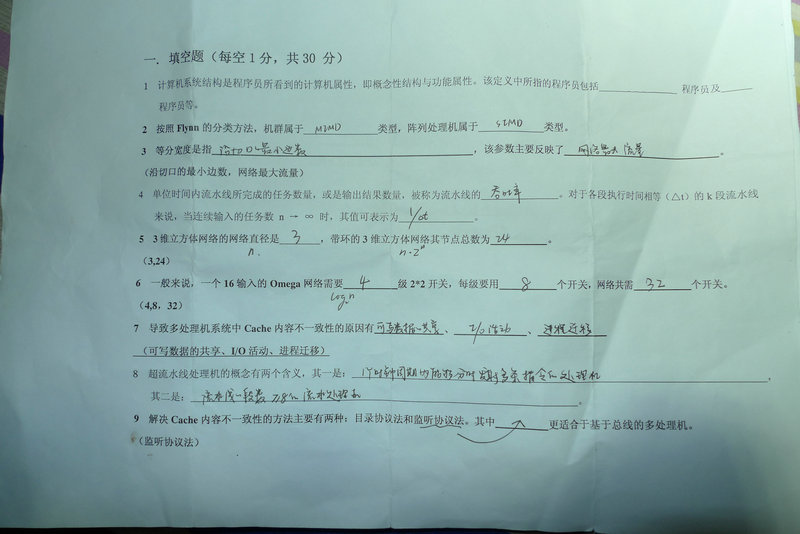 一．填空题（每空1分，共30 分）
1 计算机系统结构是程序员所看到的计算机属性，即概念性结构与功能属性。该定义中所指的程序员包括 程序员及
程序员等。
2 按照 Flynn 的分类方法，机群属于 MIMD 类型，阵列处理机属于 SIMD 类型。
3 等分宽度是指 沿切口的最小边数 ，该参数主要反映了 网络最大流量 。
（沿切口的最小边数，网络最大流量）
4 单位时间内流水线所完成的任务数量，或是输出结果数量，被称为流水线的 吞吐率 。对于各段执行时间相等（△t）的 k 段流水线
来说，当连续输入的任务数 n → ∞ 时，其值可表示为 1/△t 。
5 3维立方体网络的网络直径是 3 ，带环的 3 维立方体网络其节点总数为 24 。
n. n·2ⁿ
（3,24）
6 一般来说，一个 16 输入的 Omega 网络需要 4 级 2*2 开关，每级要用 8 个开关，网络共需 32 个开关。
log₂n
（4,8，32）
7 导致多处理机系统中 Cache 内容不一致性的原因有 可写数据的共享 、 I/O活动 、 进程迁移
（可写数据的共享、I/O 活动、进程迁移）
8 超流水线处理机的概念有两个含义，其一是： 1个时钟周期 分时 多条指令的处理机 ，
其二是： 流水线段数 ≥8的流水处理机 。
9 解决 Cache 内容不一致性的方法主要有两种：目录协议法和监听协议法。其中 更适合于基于总线的多处理机。
（监听协议法）